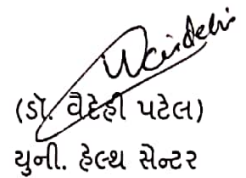 Vaidehi
(ડૉ. વૈદેહી પટેલ)
યુની. હેલ્થ સેન્ટર